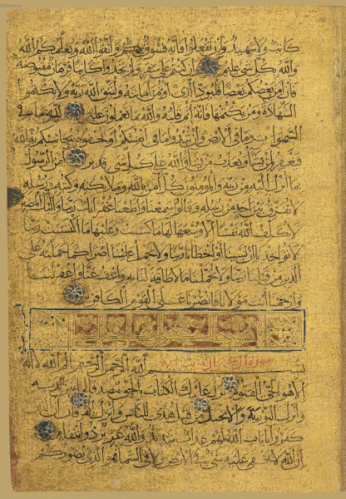 كاتب ولا شهيد وإن تفعلوا فإنه فسوق بكم واتقوا الله ويعلمكم الله
والله بكل شيء عليم وإن كنتم على سفر ولم تجدوا كاتبا فرهان مقبوضة
فإن أمن بعضكم بعضا فليؤد الذي اؤتمن أمانته وليتق الله ربه ولا تكتموا
الشهادة ومن يكتمها فإنه آثم قلبه والله بما تعملون عليم لله ما في
السموات وما في الأرض وإن تبدوا ما في أنفسكم أو تخفوه يحاسبكم به الله
فيغفر لمن يشاء ويعذب من يشاء والله على كل شيء قدير آمن الرسول
بما أنزل إليه من ربه والمؤمنون كل آمن بالله وملائكته وكتبه ورسله
لا نفرق بين أحد من رسله وقالوا سمعنا وأطعنا غفرانك ربنا وإليك المصير
لا يكلف الله نفسا إلا وسعها لها ما كسبت وعليها ما اكتسبت ربنا
لا تؤاخذنا إن نسينا أو أخطأنا ربنا ولا تحمل علينا إصرا كما حملته على
الذين من قبلنا ربنا ولا تحملنا ما لا طاقة لنا به واعف عنا واغفر لنا
وارحمنا أنت مولانا فانصرنا على القوم الكافرين
سورة آل عمران
بسم الله الرحمن الرحيم الم الله لا إله
إلا هو الحي القيوم نزل عليك الكتاب بالحق مصدقا لما بين يديه
وأنزل التورية والإنجيل من قبل هدى للناس وأنزل الفرقان إن الذين
كفروا بآيات الله لهم عذاب شديد والله عزيز ذو انتقام
إن الله لا يخفى عليه شيء في الأرض ولا في السماء هو الذي يصوركم